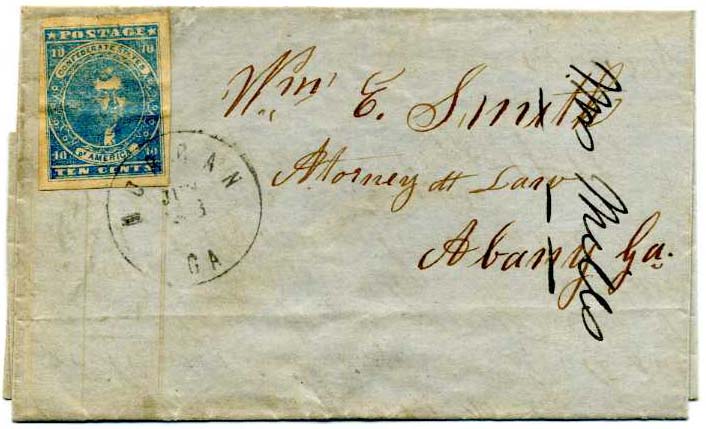 POSTAGE
10 10
CONFEDERATE STATES
OF AMERICA
10 10
TEN CENTS
GA
Wm E. Smith
Attorney at Law
Abany Ga.